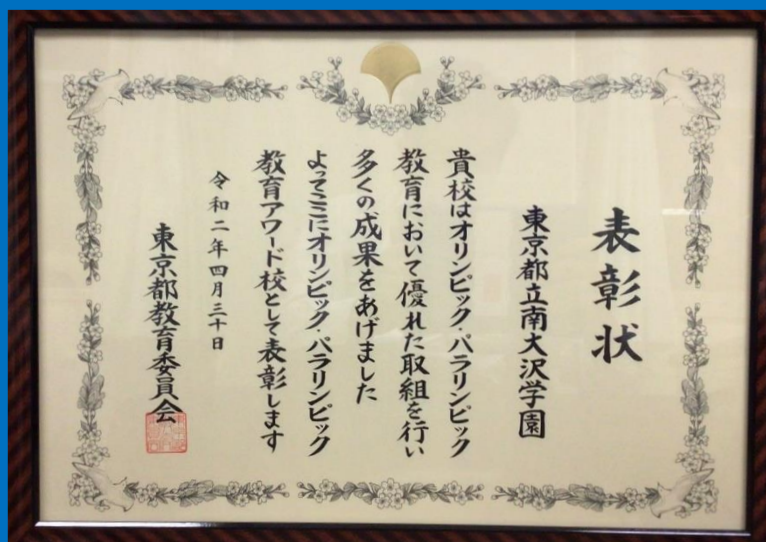 表彰状
東京都立南大沢学園
貴校はオリンピック・パラリンピック
教育において優れた取組を行い
多くの成果をあげました
よってここにオリンピック・パラリンピック
教育アワード校として表彰します
令和二年四月三十日
東京都教育委員会